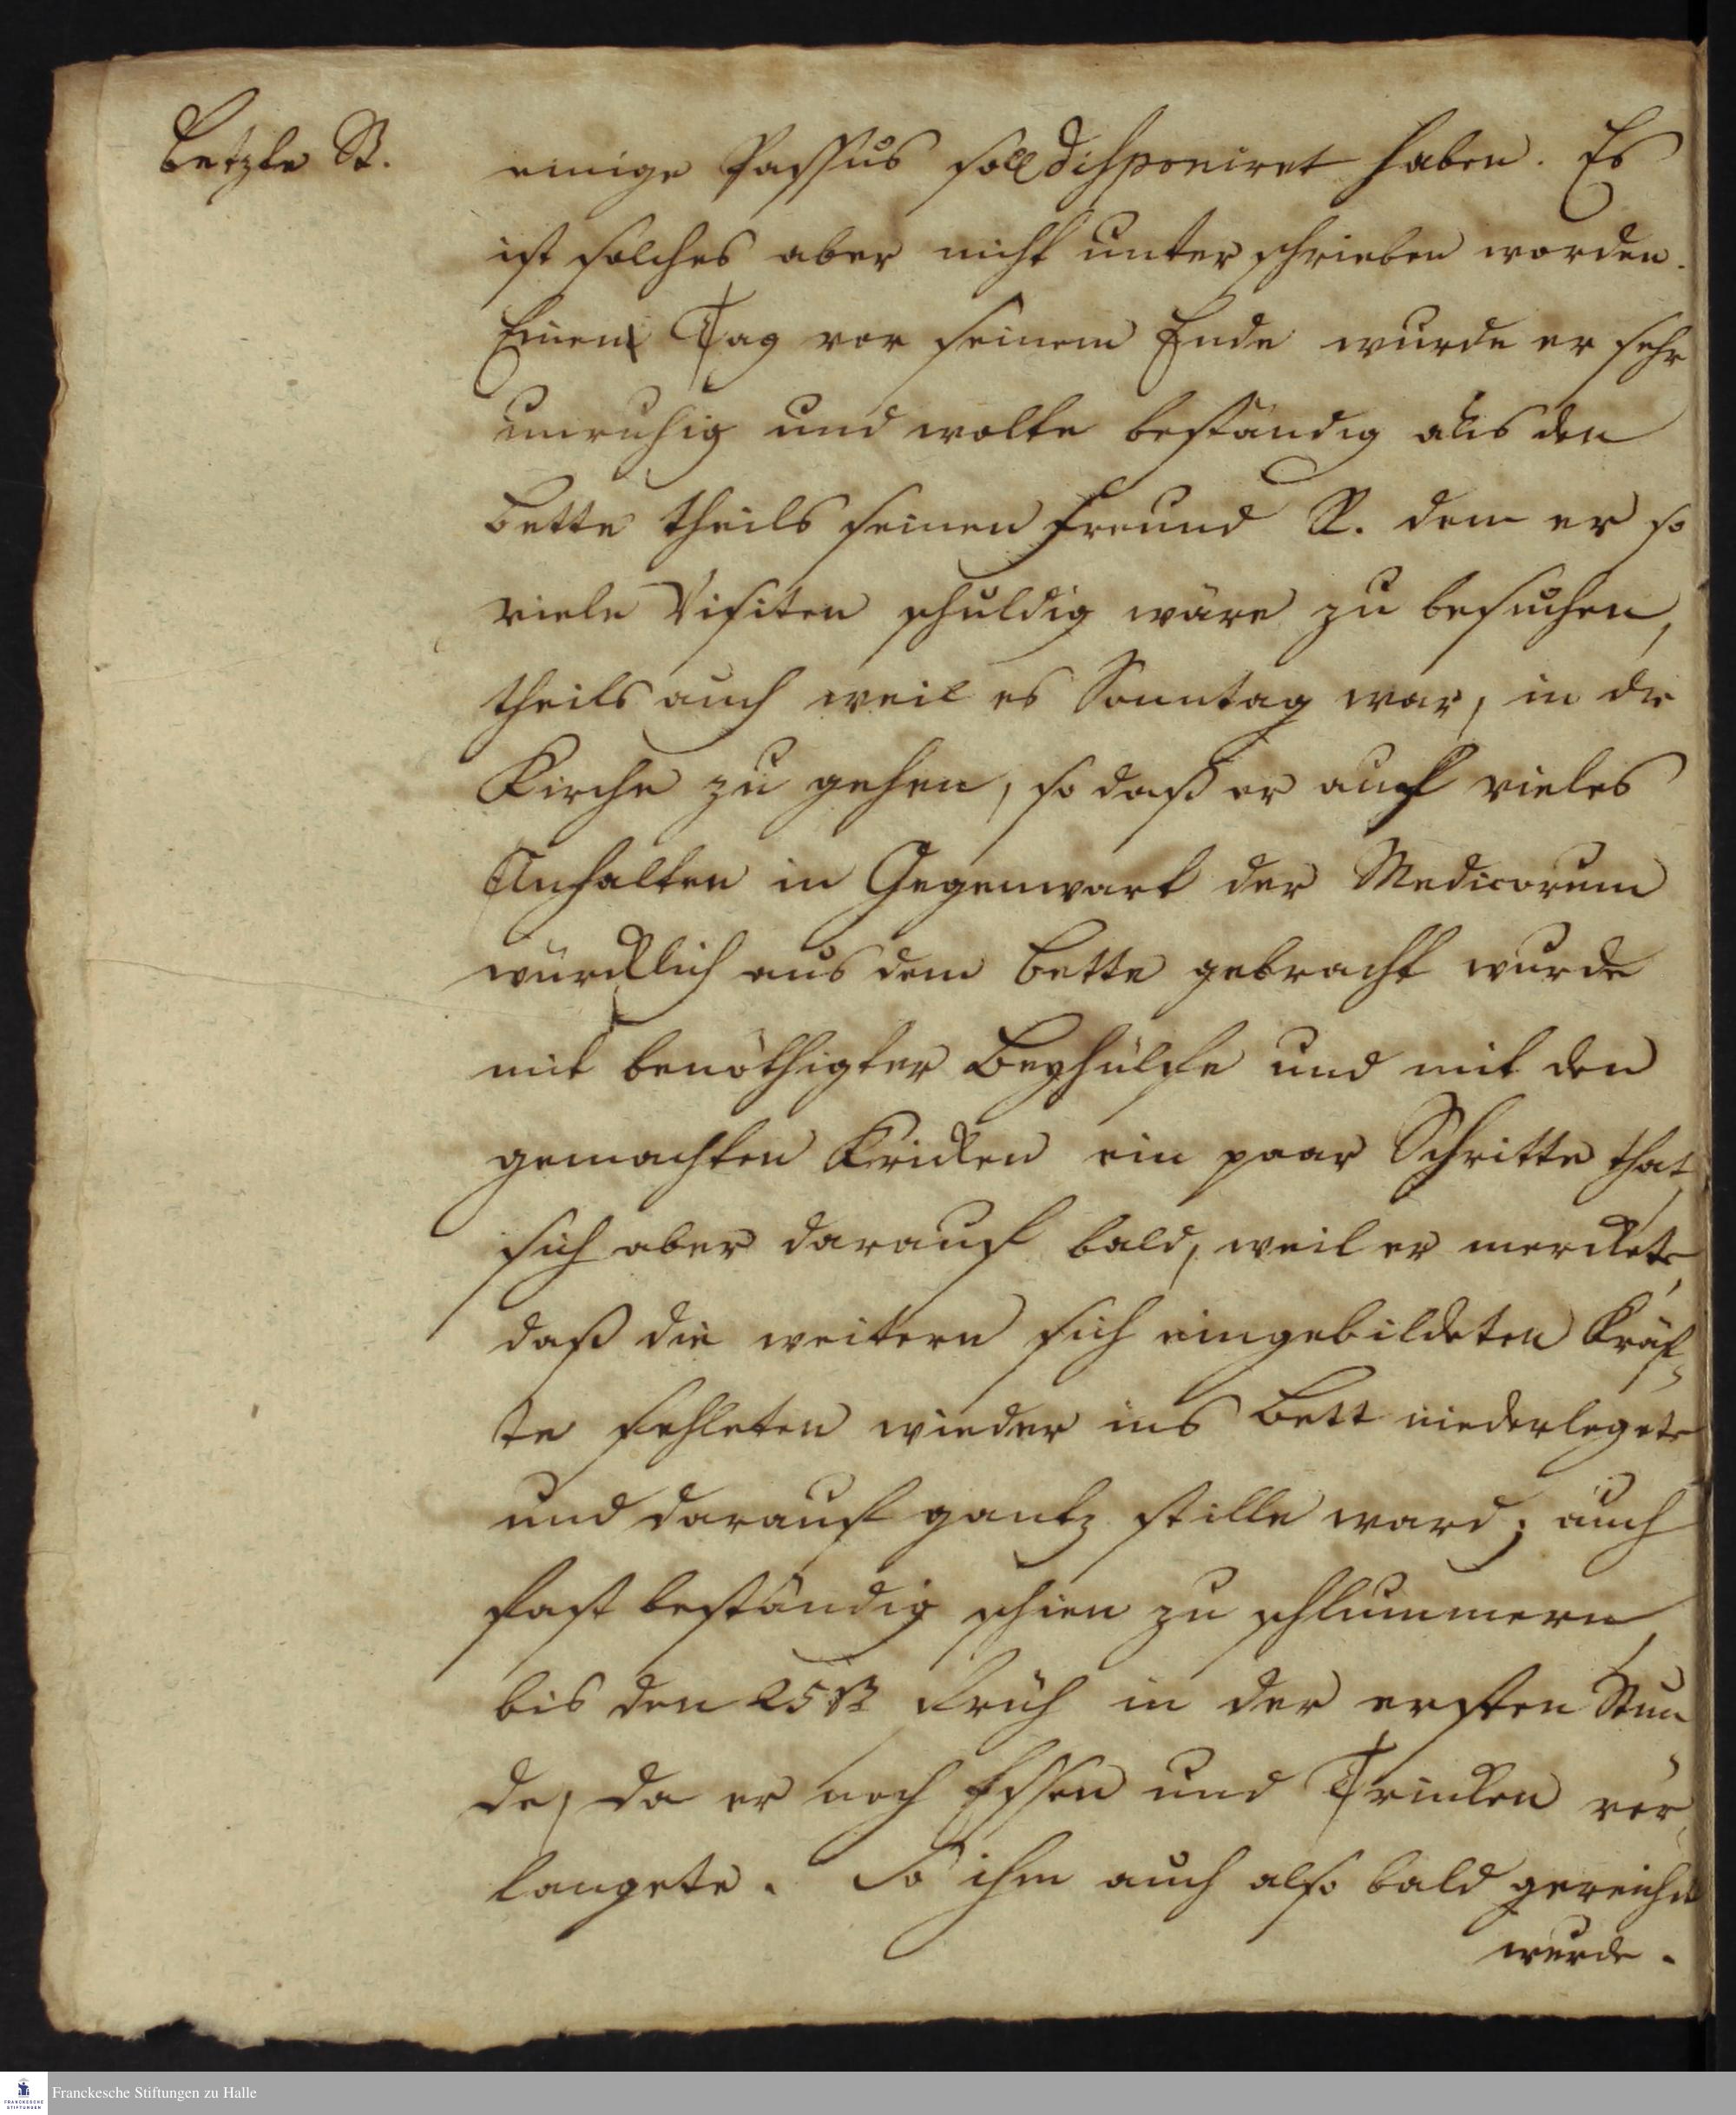 Letzte St.
einige Passus soll disponiret haben. Es
ist solches aber nicht unterschrieben worden.
Einen Tag vor seinem Ende wurde er sehr
unruhig und wolte beständig aus den
Bette theils seinen Freund R. dem er so
viele Visiten schuldig wäre zu besuchen,
theils auch weil es Sonntag war, in die
Kirche zu gehen, so daß er auf vieles
Anhalten in Gegenwart der Medicorum
würcklich aus dem Bette gebracht wurde
mit benöthigter Beyhülfe und mit den
gemachten Kricken ein paar Schritte that,
sich aber darauf bald, weil er merckete,
daß die weitern sich eingebildeten Kräf-
te fehleten wieder ins Bett niederlegete
und darauf gantz stille ward; auch
fast beständig schien zu schlummern,
bis den 25 früh in der ersten Stun
de, da er noch Essen und Trincken ver
langete. So ihm auch also bald gereichet
wurde.
Franckesche Stiftungen zu Halle
FRANCKESCHE
STIFTUNGEN